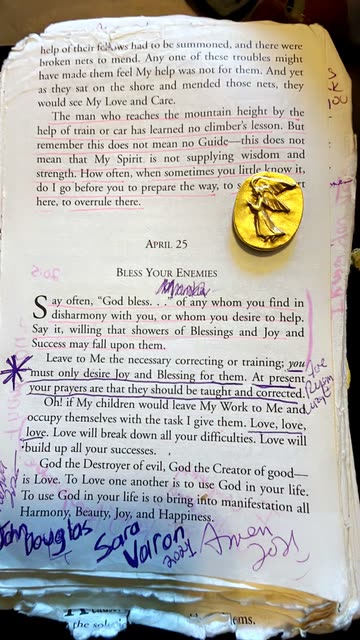 help of their fellows had to be summoned, and there were
broken nets to mend. Any one of these troubles might
have made them feel My help was not for them. And yet
as they sat on the shore and mended those nets, they
would see My Love and Care.
The man who reaches the mountain height by the
help of train or car has learned no climber's lesson. But
remember this does not mean no Guide—this does not
mean that My Spirit is not supplying wisdom and
strength. How often, when sometimes you little know it,
do I go before you to prepare the way, to
here, to overrule there.
APRIL 25
BLESS YOUR ENEMIES
Say often, "God bless. . ." of any whom you find in
disharmony with you, or whom you desire to help.
Say it, willing that showers of Blessings and Joy and
Success may fall upon them.
Leave to Me the necessary correcting or training; you
must only desire Joy and Blessing for them. At present
your prayers are that they should be taught and corrected.
Oh! if My children would leave My Work to Me and
occupy themselves with the task I give them. Love, love,
love. Love will break down all your difficulties. Love will
build up all your successes.
God the Destroyer of evil, God the Creator of good—
is Love. To Love one another is to use God in your life.
To use God in your life is to bring into manifestation all
Harmony, Beauty, Joy, and Happiness.
John
Douglas
Sara
Varon
2021
Amen
2021
the